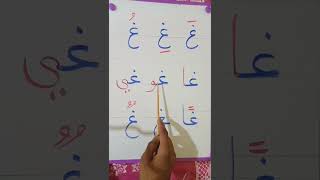 غَ غِ غُ
غا غو غي
غًا غٌ